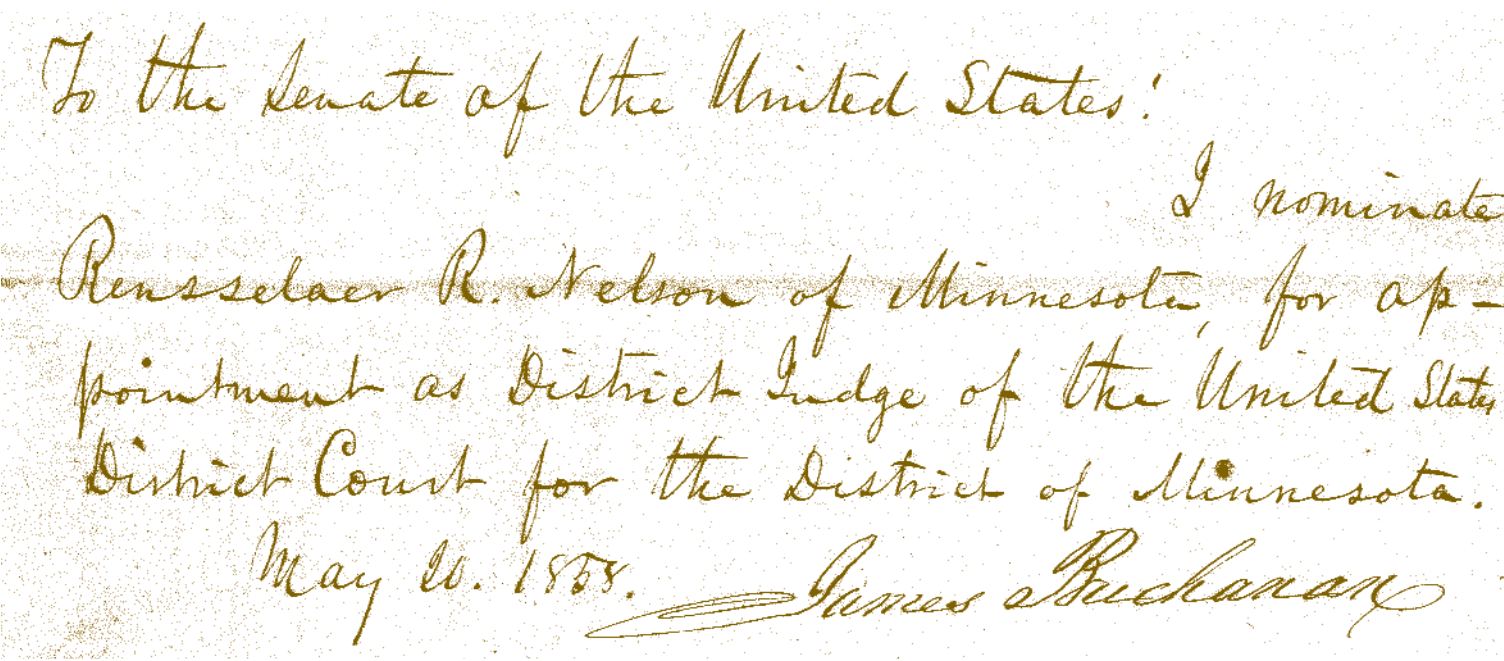 To the Senate of the United States:
I nominate
Rensselaer R. Nelson of Minnesota, for ap-
pointment as District Judge of the United States
District Court for the District of Minnesota.
May 20. 1858. James Buchanan